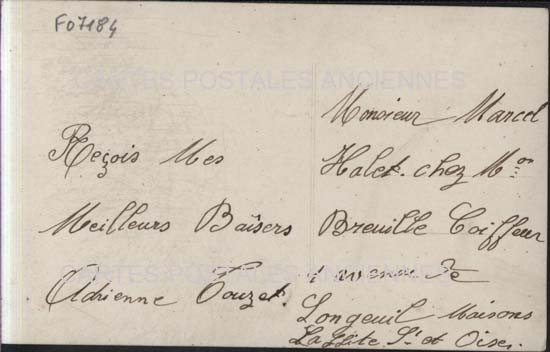 F07184
CARTES POSTALES ANCIENNES
Reçois Mes
Meilleurs Baisers
Adrienne Touzet.
Monsieur Marcel
Halet. chez Mon
Breuille Coiffeur
1 avenue De
Longeuil Maisons
Laffite St et Oise.
CARTES POSTALES ANCIENNES